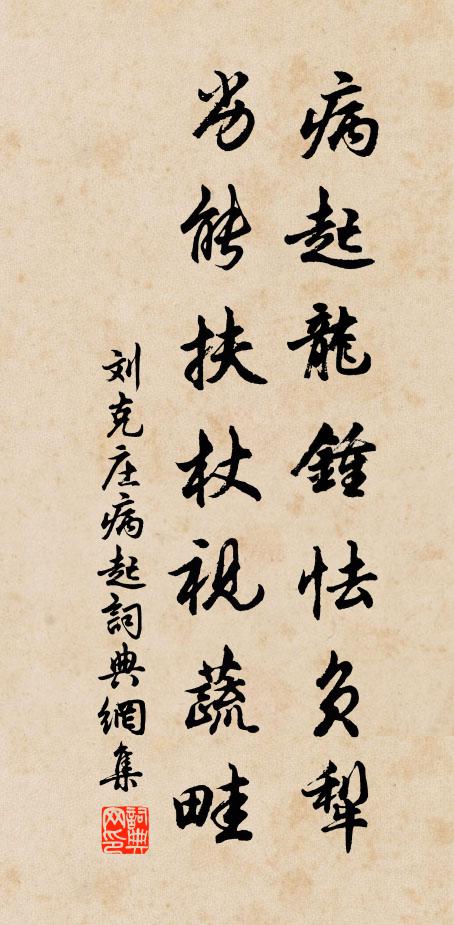 病起龍鍾怯負犁
尚能扶杖視蔬畦
刘克庄病起詞典網集
詞典网印